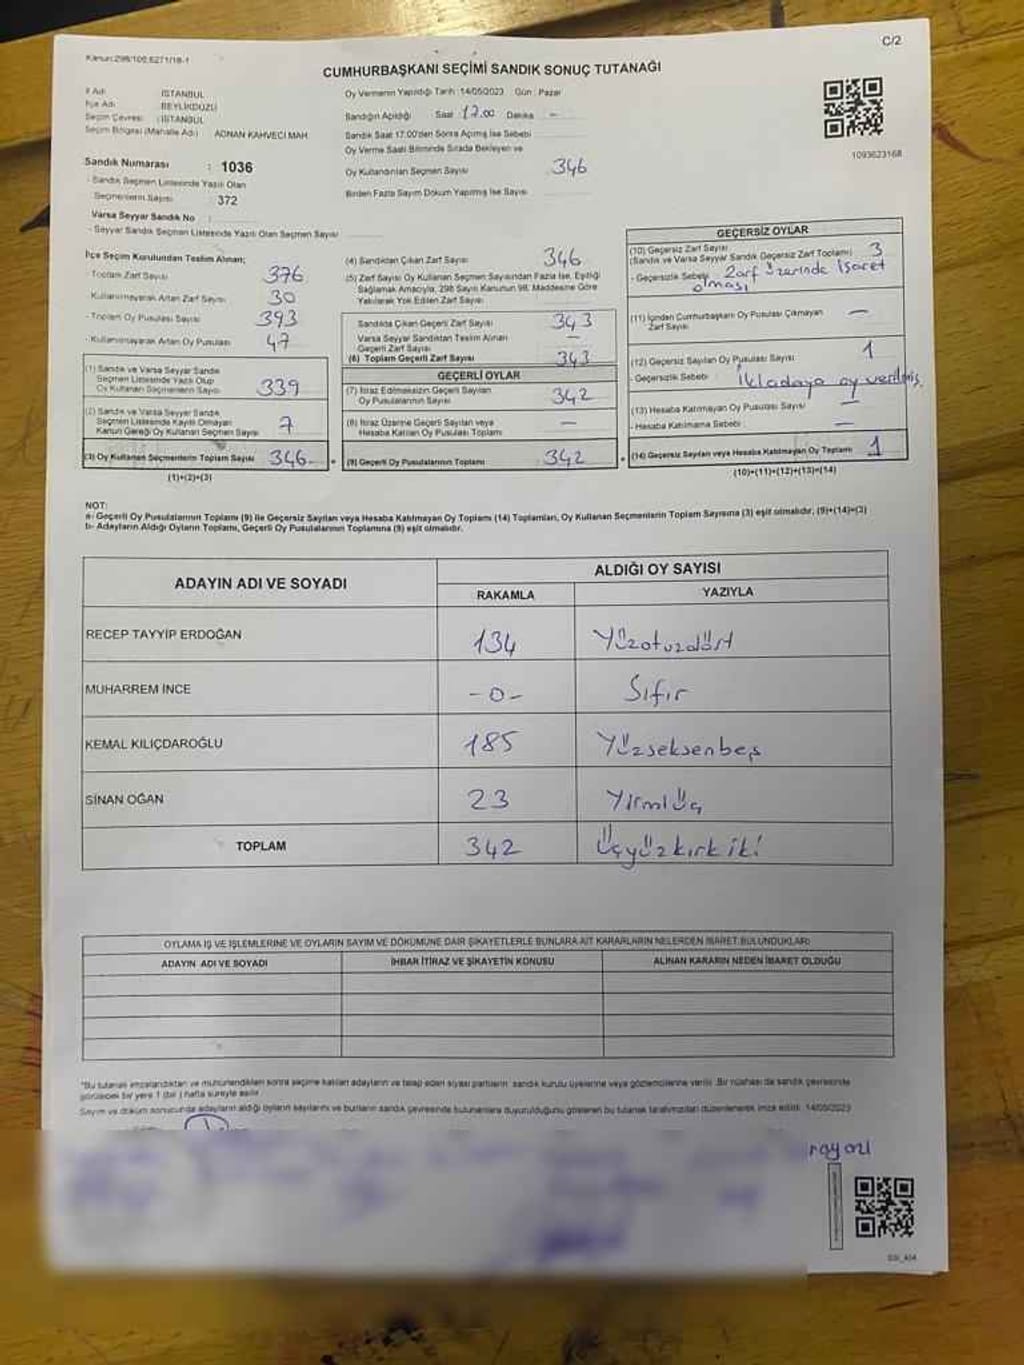 C/2
Kanun:298/105,6271/18-1
CUMHURBAŞKANI SEÇİMİ SANDIK SONUÇ TUTANAĞI
İl Adı İSTANBUL
İlçe Adı BEYLİKDÜZÜ
Seçim Çevresi : İSTANBUL
Seçim Bölgesi (Mahalle Adı) ADNAN KAHVECİ MAH.
Sandık Numarası : 1036
- Sandık Seçmen Listesinde Yazılı Olan
Seçmenlerin Sayısı 372
Varsa Seyyar Sandık No :
- Seyyar Sandık Seçmen Listesinde Yazılı Olan Seçmen Sayısı
Oy Vermenin Yapıldığı Tarih :14/05/2023 Gün : Pazar
Sandığın Açıldığı Saat : 17.00 Dakika -
Sandık Saat 17:00'den Sonra Açılmış İse Sebebi
Oy Verme Saati Bitiminde Sırada Bekleyen ve
Oy Kullandırılan Seçmen Sayısı 346
Birden Fazla Sayım Döküm Yapılmış İse Sayısı
1093623168
İlçe Seçim Kurulundan Teslim Alınan;
- Toplam Zarf Sayısı 376
- Kullanılmayarak Artan Zarf Sayısı 30
- Toplam Oy Pusulası Sayısı 393
- Kullanılmayarak Artan Oy Pusulası 47
(1) Sandık ve Varsa Seyyar Sandık
Seçmen Listesinde Yazılı Olup
Oy Kullanan Seçmenlerin Sayısı 339
(2) Sandık ve Varsa Seyyar Sandık
Seçmen Listesinde Kayıtlı Olmayan
Kanun Gereği Oy Kullanan Seçmen Sayısı 7
(3) Oy Kullanan Seçmenlerin Toplam Sayısı 346
(1)+(2)=(3)
(4) Sandıktan Çıkan Zarf Sayısı 346
(5) Zarf Sayısı Oy Kullanan Seçmen Sayısından Fazla İse, Eşitliği
Sağlamak Amacıyla, 298 Sayılı Kanunun 98. Maddesine Göre
Yakılarak Yok Edilen Zarf Sayısı
Sandıkta Çıkan Geçerli Zarf Sayısı 343
Varsa Seyyar Sandıktan Teslim Alınan
Geçerli Zarf Sayısı —
(6) Toplam Geçerli Zarf Sayısı 343
GEÇERLİ OYLAR
(7) İtiraz Edilmeksizin Geçerli Sayılan
Oy Pusulalarının Sayısı 342
(8) İtiraz Üzerine Geçerli Sayılan veya
Hesaba Katılan Oy Pusulası Toplamı —
(9) Geçerli Oy Pusulalarının Toplamı 342
GEÇERSİZ OYLAR
(10) Geçersiz Zarf Sayısı 3
(Sandık ve Varsa Seyyar Sandık Geçersiz Zarf Toplamı)
- Geçersizlik Sebebi Zarf üzerinde işaret
olması
(11) İçinden Cumhurbaşkanı Oy Pusulası Çıkmayan
Zarf Sayısı —
(12) Geçersiz Sayılan Oy Pusulası Sayısı 1
- Geçersizlik Sebebi : ikiadaya oy verilmiş.
(13) Hesaba Katılmayan Oy Pusulası Sayısı —
- Hesaba Katılmama Sebebi : —
(14) Geçersiz Sayılan veya Hesaba Katılmayan Oy Toplamı 1
(10)+(11)+(12)+(13)=(14)
NOT:
a- Geçerli Oy Pusulalarının Toplamı (9) ile Geçersiz Sayılan veya Hesaba Katılmayan Oy Toplamı (14) Toplamları, Oy Kullanan Seçmenlerin Toplam Sayısına (3) eşit olmalıdır, (9)+(14)=(3)
b- Adayların Aldığı Oyların Toplamı, Geçerli Oy Pusulalarının Toplamına (9) eşit olmalıdır.
ADAYIN ADI VE SOYADI ALDIĞI OY SAYISI
RAKAMLA YAZIYLA
RECEP TAYYİP ERDOĞAN 134 Yüzotuzdört
MUHARREM İNCE -0- Sıfır
KEMAL KILIÇDAROĞLU 185 Yüzseksenbeş
SİNAN OĞAN 23 Yirmiüç
TOPLAM 342 Üçyüzkırkiki
OYLAMA İŞ VE İŞLEMLERİNE VE OYLARIN SAYIM VE DÖKÜMÜNE DAİR ŞİKAYETLERLE BUNLARA AİT KARARLARIN NELERDEN İBARET BULUNDUKLARI
ADAYIN ADI VE SOYADI İHBAR İTİRAZ VE ŞİKAYETİN KONUSU ALINAN KARARIN NEDEN İBARET OLDUĞU
*Bu tutanak imzalandıktan ve mühürlendikten sonra seçime katılan adayların ve talep eden siyasi partilerin sandık kurulu üyelerine veya gözlemcilerine verilir. Bir nüshası da sandık çevresinde
görülecek bir yere 1 (bir) hafta süreyle asılır.
Sayım ve döküm sonucunda adayların aldığı oyların sayılarını ve bunların sandık çevresinde bulunanlara duyurulduğunu gösteren bu tutanak tarafımızdan düzenlenerek imza edildi. 14/05/2023